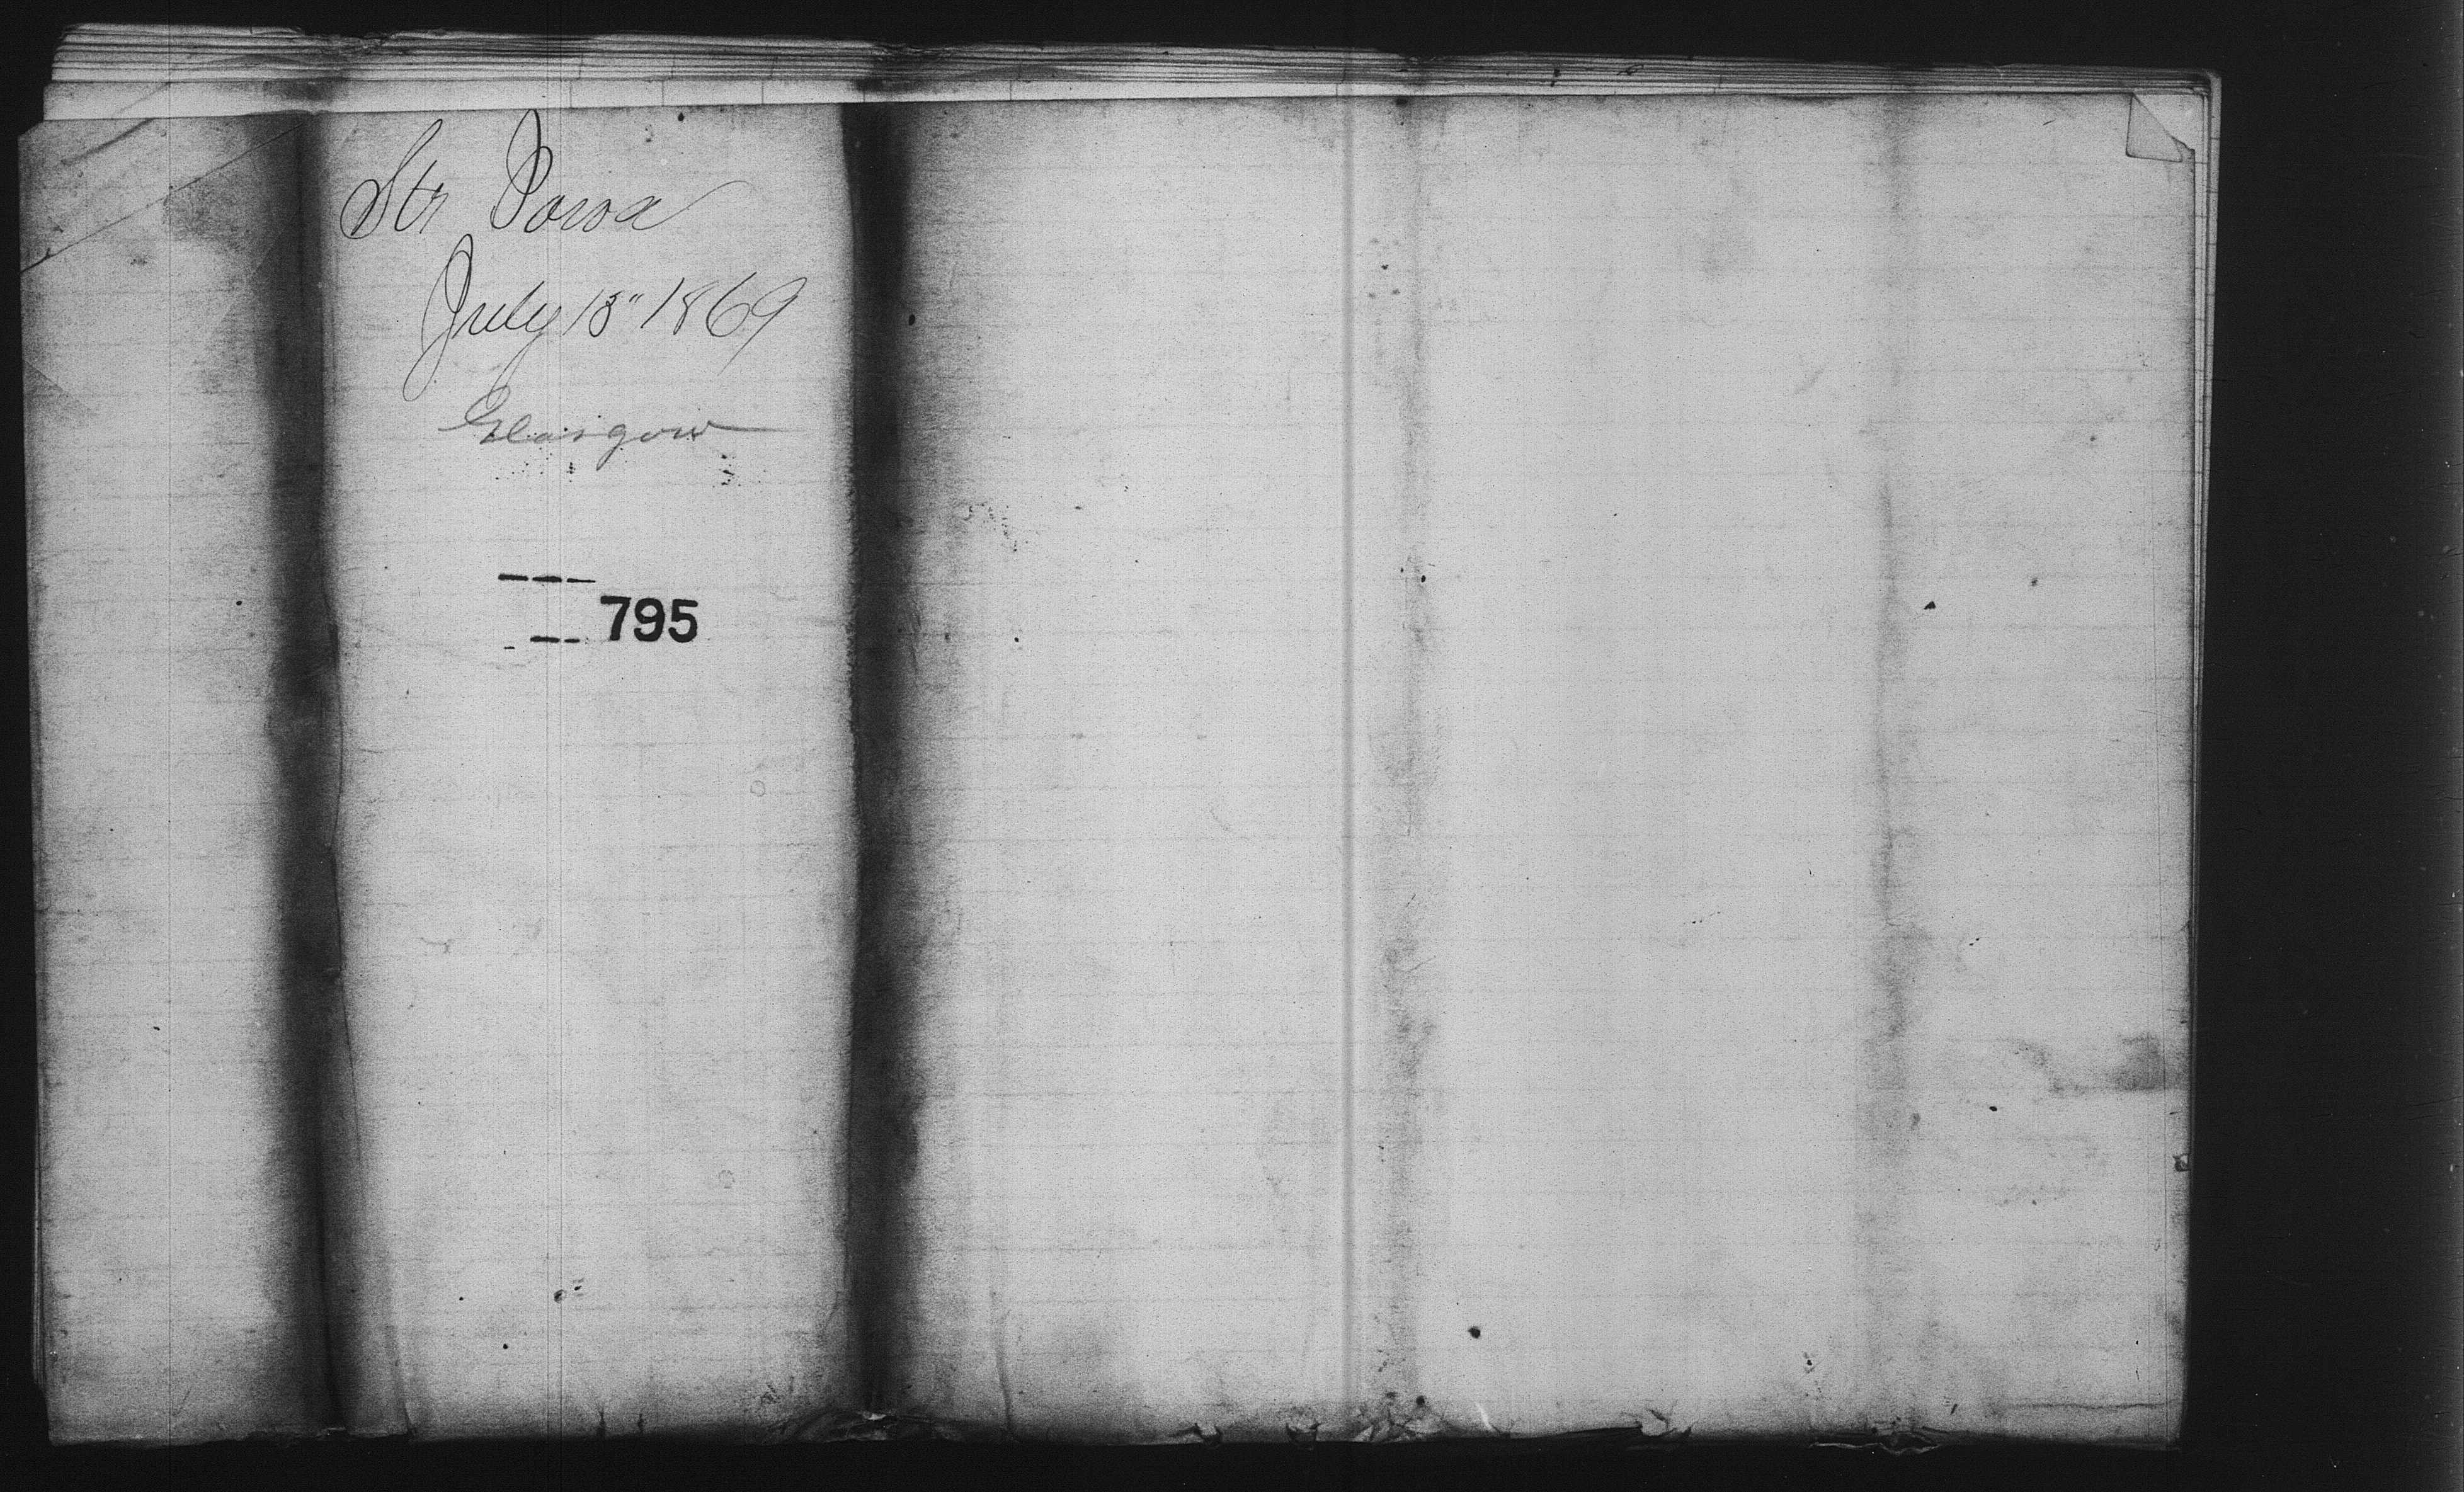 Str Iowa
July 13" 1869
Glasgow
795